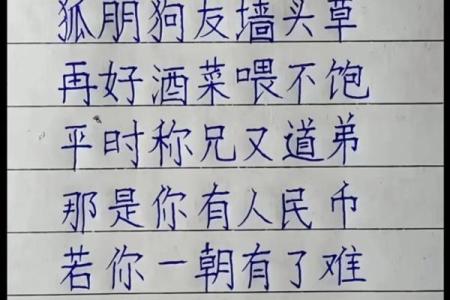 狐朋狗友墙头草
再好酒菜喂不饱
平时称兄又道弟
那是你有人民币
若你一朝有了难